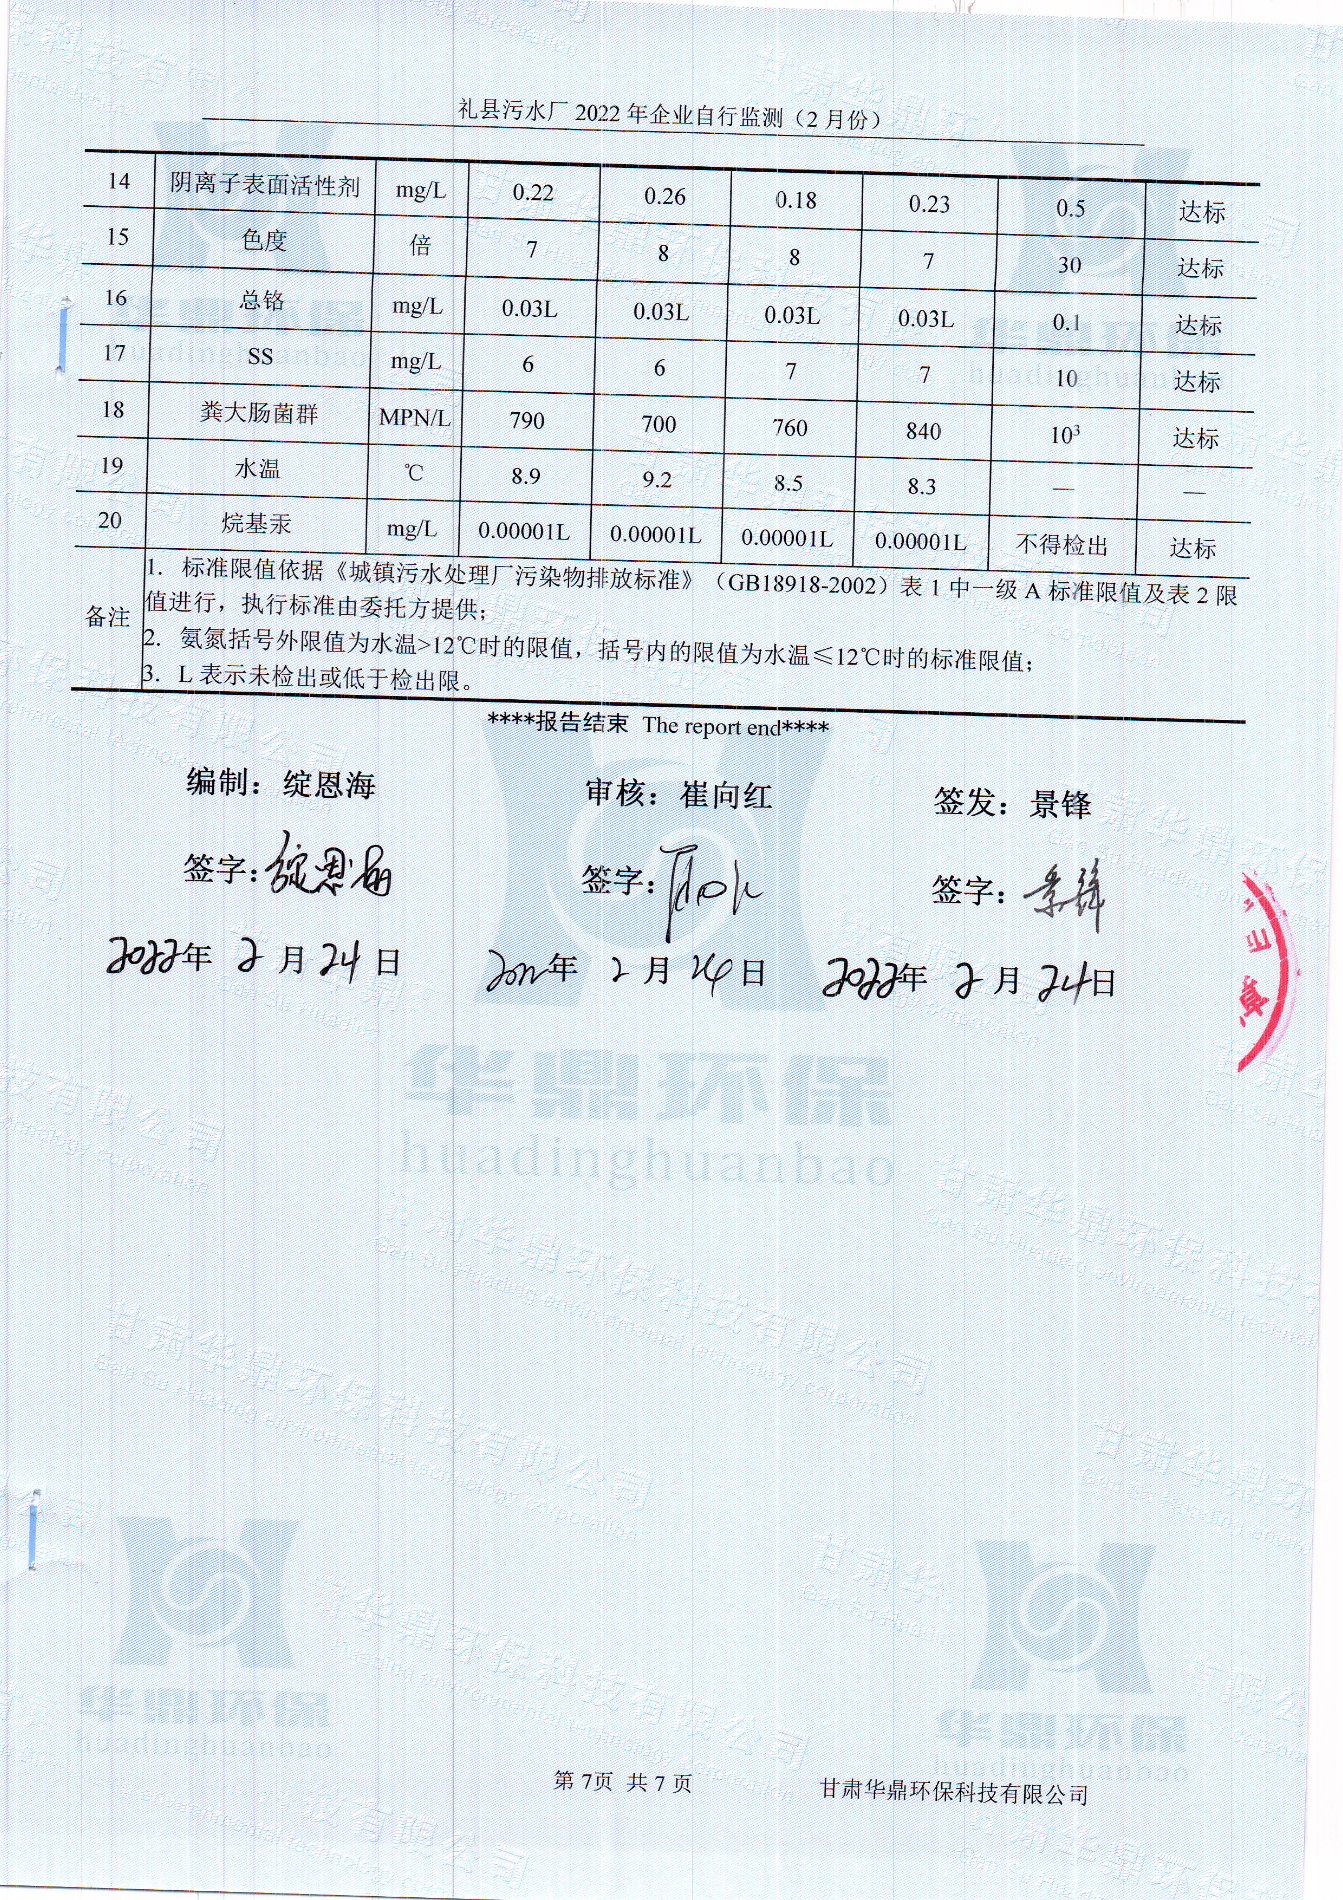 礼县污水厂 2022 年企业自行监测（2 月份）
14 阴离子表面活性剂 mg/L 0.22 0.26 0.18 0.23 0.5 达标
15 色度 倍 7 8 8 7 30 达标
16 总铬 mg/L 0.03L 0.03L 0.03L 0.03L 0.1 达标
17 SS mg/L 6 6 7 7 10 达标
18 粪大肠菌群 MPN/L 790 700 760 840 10³ 达标
19 水温 ℃ 8.9 9.2 8.5 8.3 — —
20 烷基汞 mg/L 0.00001L 0.00001L 0.00001L 0.00001L 不得检出 达标
备注
1. 标准限值依据《城镇污水处理厂污染物排放标准》（GB18918-2002）表 1 中一级 A 标准限值及表 2 限
值进行，执行标准由委托方提供；
2. 氨氮括号外限值为水温>12℃时的限值，括号内的限值为水温≤12℃时的标准限值；
3. L 表示未检出或低于检出限。
****报告结束 The report end****
编制：绽恩海 审核：崔向红 签发：景锋
签字：绽恩海 签字： 签字：景锋
2022年 2 月 24 日 2022年 2 月 24 日 2022年 2 月 24日
华鼎环保
huadinghuanbao
第 7页 共 7 页 甘肃华鼎环保科技有限公司